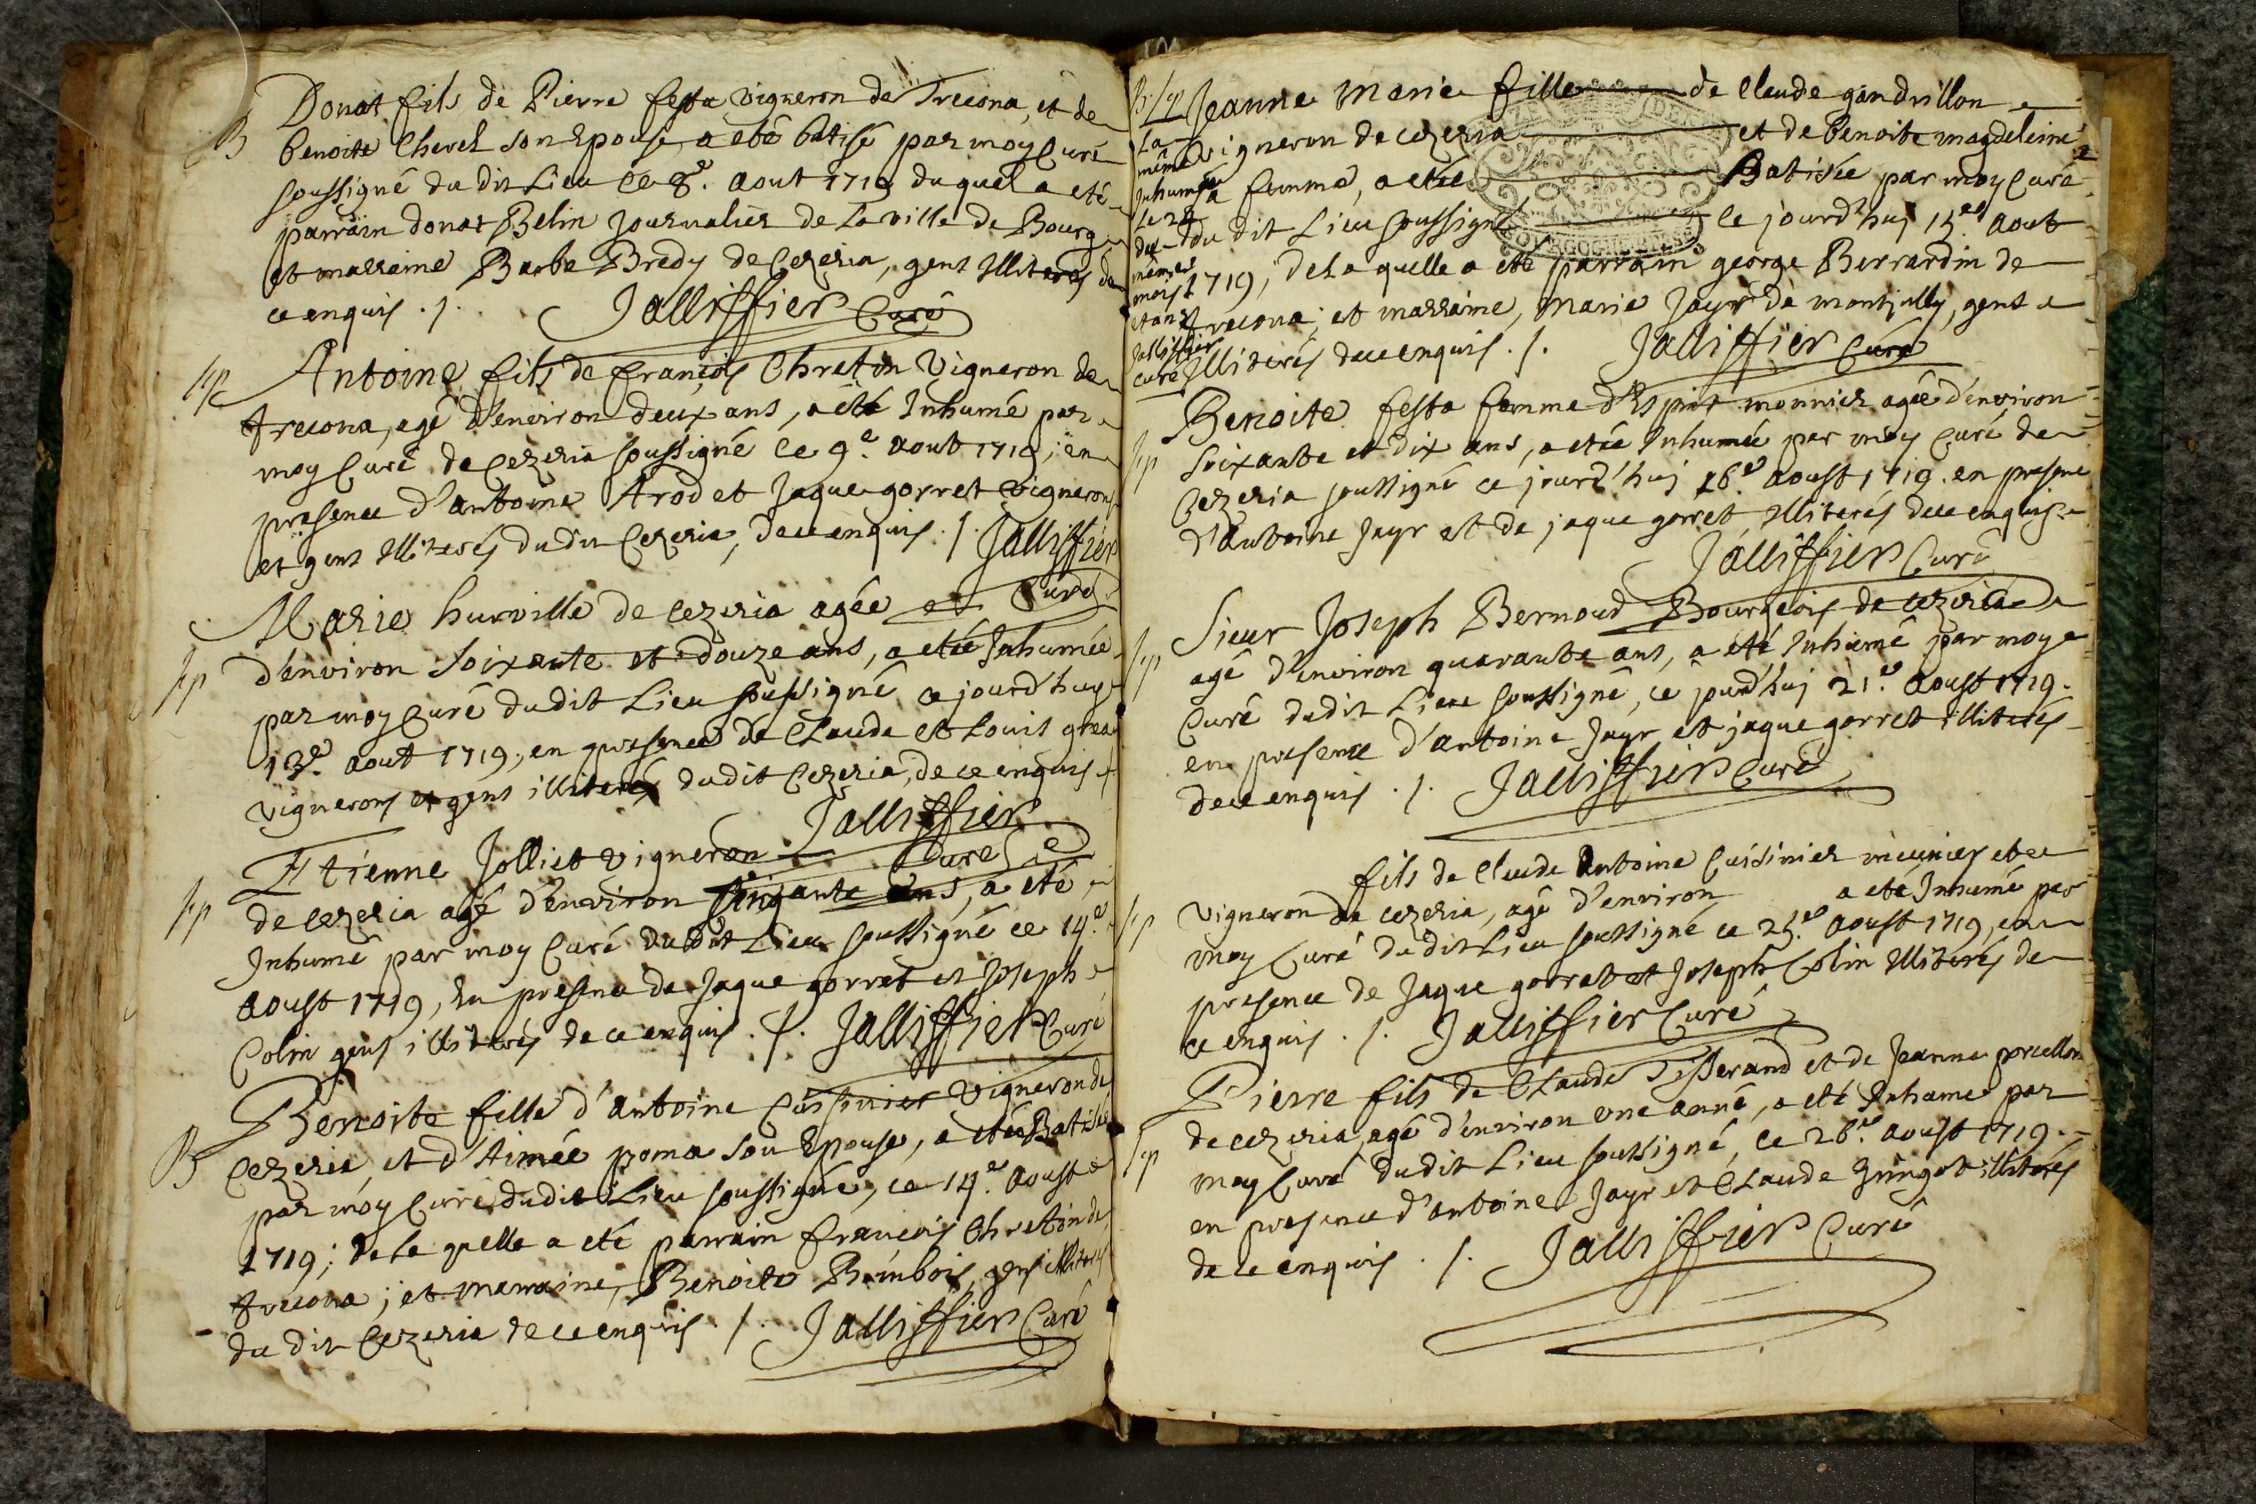 B
Donat fils de Pierre festa vigneron de Trecona, et de
benoite Chevel son Epouse, a eté batisé par moy Curé
soussigné du dit Lieu le 8e. aout 1719 duquel a eté
parrain donat Belin Journalier de La ville de Bourg
et marraine Barbe Bredy de Cezeria, gens Illiterés de
ce enquis ./. Jalliffier Curé
sep
Antoine fils de françois Chretin Vigneron de
trecona, agé d'environ deux ans, a eté Inhumé par
moy Curé de Cezeria soussigné ce 9e. aout 1719, en
presence d'antoine Arod et Jaque gorret Vignerons
et gens Illiterés dudit Cezeria, de ce enquis ./. Jalliffier
Curé
Marie hurville de cezeria agée
sep
d'environ soixante et douze ans, a etée Inhumée
par moy Curé dudit Lieu soussigné ce jourd'huy
13e. aout 1719, en presence de Claude et Louis
vignerons et gens illiterés dudit Cezeria, de ce enquis
Jalliffier
Curé
Etienne Jolliet vigneron
sep
de cezeria agé d'environ ans, a eté
Inhumé par moy Curé dudit Lieu soussigné ce 14e.
aoust 1719, En presence de Jaque gorret et Joseph
Colin gens illiterés de ce enquis ./. Jalliffier Curé
B
Benoite fille d'antoine Cuisinier Vigneron de
Cezeria, et d'Aimée poma son Epouse, a etée Batisée
par moy Curé dudit Lieu soussigné, ce 14e. aoust
1719; de La quelle a eté parrain françois Chretin de
trecona; et marraine, Benoite Bimbois, gens illiterés
du dit Cezeria de ce enquis ./. Jalliffier Curé
B. sep
Jeanne Marie fille de Claude gandrillon
vigneron de cezeria et de benoite magdeleine
sa femme, a etée Batisée par moy Curé
du dit Lieu soussigné ce jourd'huj 15e. aout
1719, de La quelle a eté parrain george Berrardin de
trecona; et marraine, Marie Jayr de montjully, gens
Illiterés de ce enquis ./. Jalliffier Curé
La
même
Inhumée
Le 28
du
même
mois
et an
Jalliffier
curé
sep
Benoite festa femme d'Esprit monnier agée d'environ
soixante et dix ans, a etée Inhumée par moy Curé de
Cezeria soussigné ce jourd'huj 16e. aoust 1719. en presence
d'Antoine Jayr et de jaque gorret, Illiterés de ce enquis
Jalliffier Curé
sep
Sieur Joseph Bernoud Bourgeois de cezeria
agé d'environ quarante ans, a eté Inhumé par moy
Curé dudit Lieu soussigné, ce jourd'huj 21e. aoust 1719.
en presence d'antoine Jayr et jaque gorret illiterés
de ce enquis ./. Jalliffier Curé
sep
fils de Claude Antoine Cuisinier meunier et
vigneron de cezeria, agé d'environ a eté Inhumé par
moy Curé dudit Lieu soussigné ce 25e. aoust 1719, en
presence de Jaque gorret et Joseph Colin Illiterés de
ce enquis ./. Jalliffier Curé
sep
Pierre fils de Claude Tisserand et de Jeanne
de cezeria, agé d'environ une année, a eté Inhumé par
moy Curé dudit Lieu soussigné, ce 26e. aoust 1719.
en presence d'antoine Jayr et Claude Gringot illiterés
de ce enquis ./. Jalliffier Curé